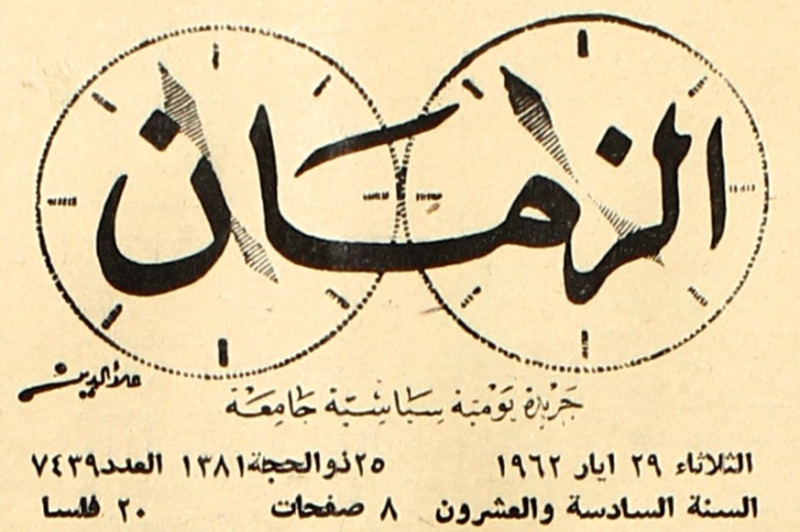 الزمان
علاءالدين
جريدة يومية سياسية جامعة
الثلاثاء ٢٩ ايار ١٩٦٢ ٢٥ ذو الحجة ١٣٨١ العدد ٧٤٣٩
السنة السادسة والعشرون ٨ صفحات ٢٠ فلسا